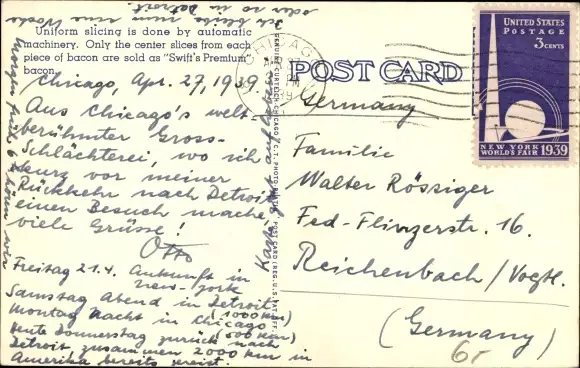 oder so in Detroit.
Ich bleibe nun eine Woche
Uniform slicing is done by automatic
machinery. Only the center slices from each
piece of bacon are sold as "Swift's Premium"
bacon.
Chicago, Apr. 27, 1939
Aus Chicago's welt-
berühmter Gross-
Schlächterei, wo ich
kurz vor meiner
Rückkehr nach Detroit
einen Besuch mache,
viele Grüsse!
Otto
Freitag 21.4. Ankunft in
New-York
Samstag Abend in Detroit
(1000 km)
Montag Nacht in Chicago
(500 km)
Heute Donnerstag zurück nach
Detroit zusammen 2000 km in
Amerika bereits gereist.
Morgen früh 6
POST CARD
CHICAGO
UNITED STATES
POSTAGE
3 CENTS
NEW YORK
WORLD'S FAIR 1939
Germany
Familie
Walter Rössiger
Fed-Flinzerstr. 16.
Reichenbach/Vogtl.
(Germany)